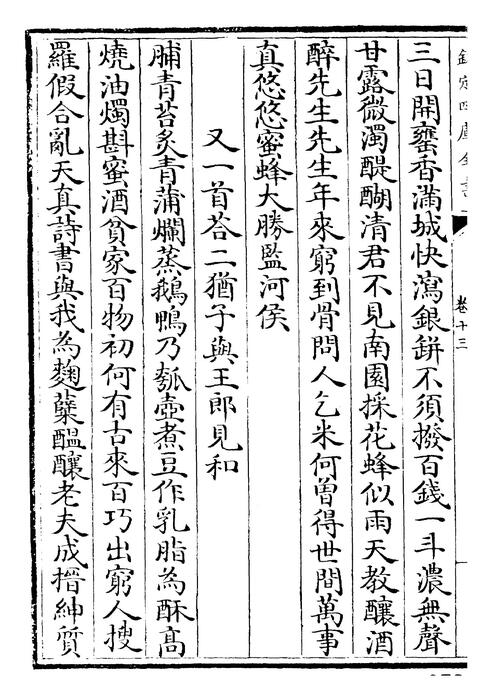 欽定四庫全書
卷十三
三日開罋香滿城快瀉銀缾不須撥百錢一斗濃無聲
甘露微濁醍醐清君不見南園採花蜂似雨天教釀酒
醉先生先生年來窮到骨問人乞米何曽得世間萬事
真悠悠蜜蜂大勝監河侯
又一首荅二猶子與王郎見和
脯青苔炙青蒲爛蒸鵝鴨乃瓠壺煮豆作乳脂為酥髙
燒油燭斟蜜酒貧家百物初何有古來百巧出窮人搜
羅假合亂天真詩書與我為麴糵醖釀老夫成搢紳質